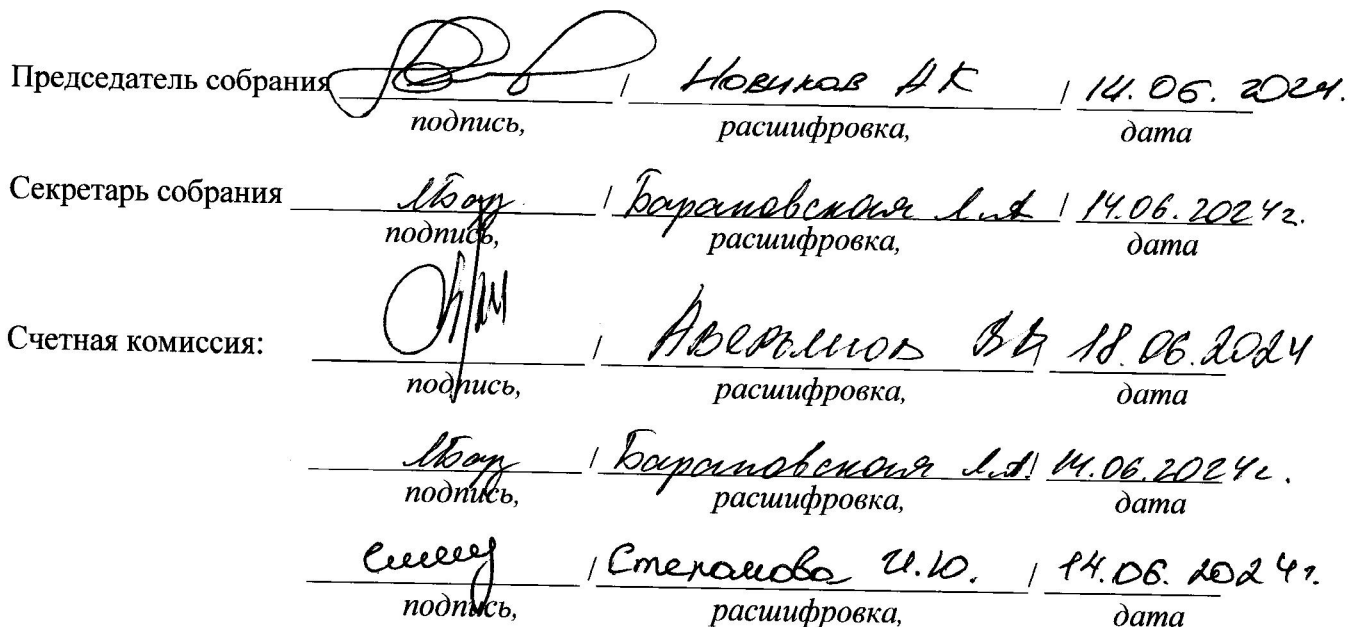 Председатель собрания / Новиков АК / 14.06.2024.
подпись, расшифровка, дата
Секретарь собрания / Барановская Л.А / 14.06.2024г.
подпись, расшифровка, дата
Счетная комиссия: / Аверьянов ВВ 18.06.2024
подпись, расшифровка, дата
/ Барановская Л.А. 14.06.2024г.
подпись, расшифровка, дата
/ Степанова И.Ю. / 14.06.2024г.
подпись, расшифровка, дата